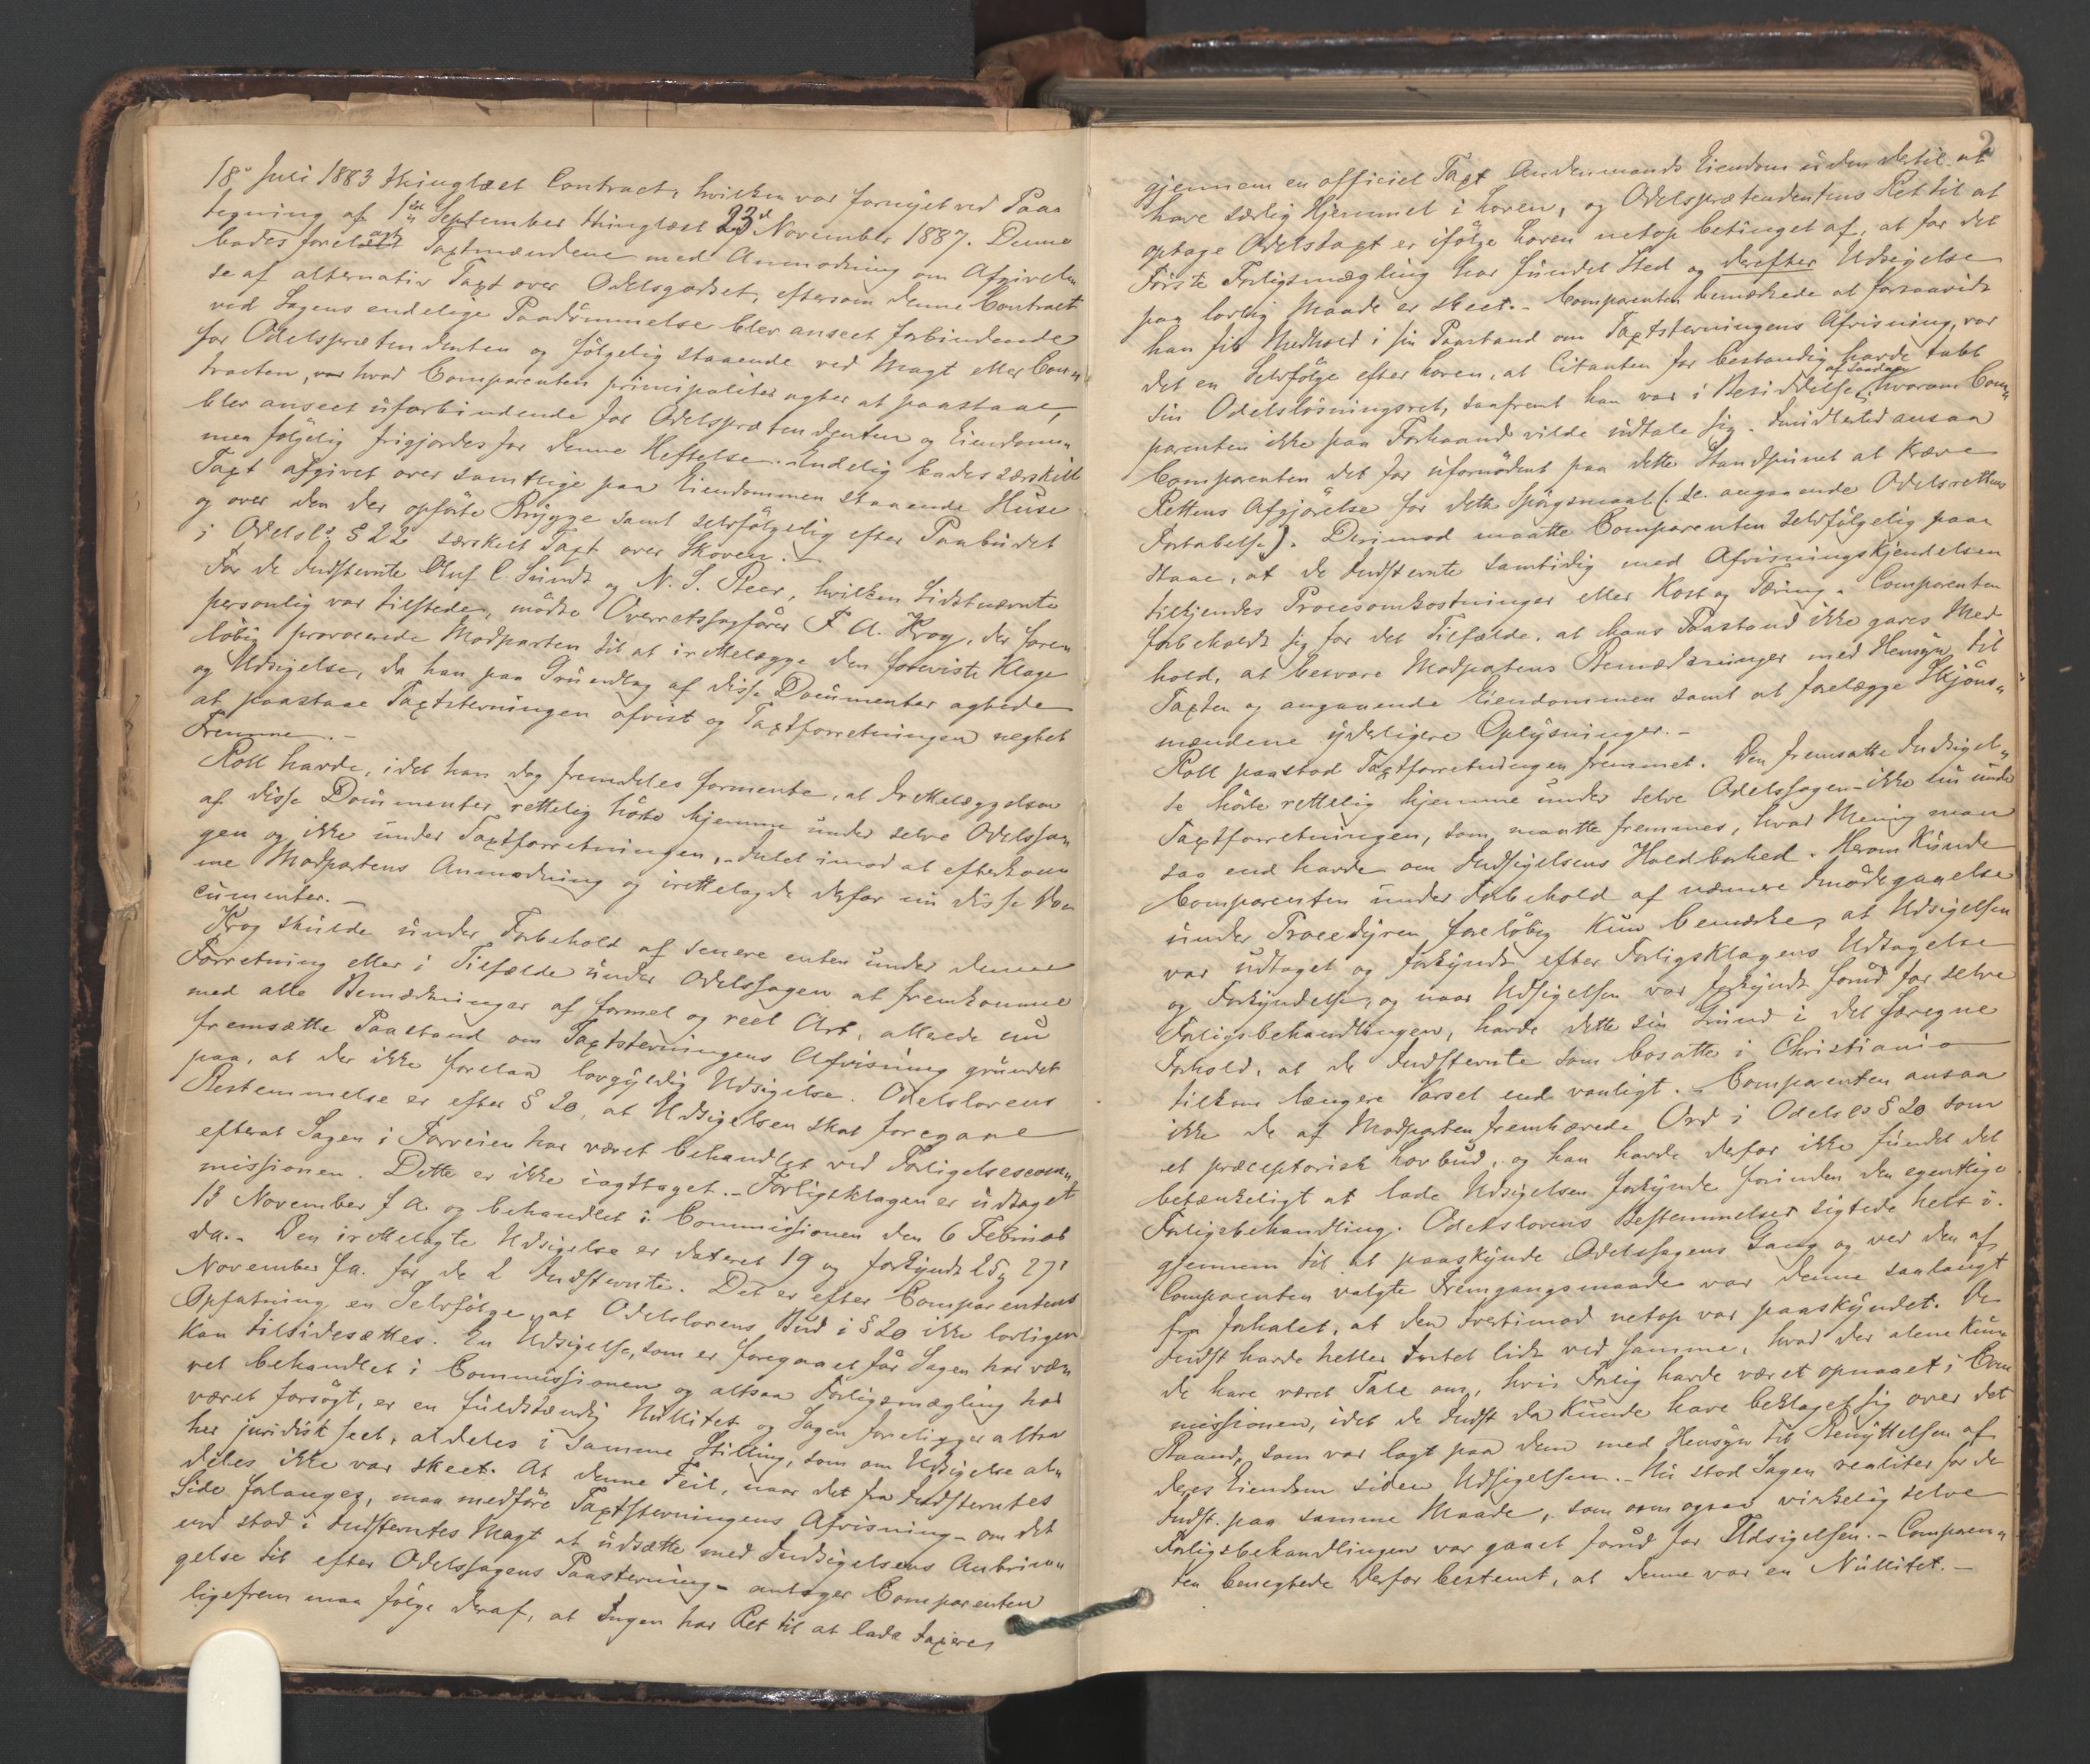 18de Juli 1883 thinglæst Contract, hvilken var fornyet ved Paa„
tegning af 1ste September thinglæst 23de November 1887. Denne
bades forelagt Taxtmændene med Anmodning om Afgivel„
se af alternativ Taxt over Odelsgodset, eftersom denne Contract
ved Sagens endelige Paadømmelse blev anseet forbindende
for Odelsprætendenten og følgelig staaende ved Magt eller Con„
tracten, var hvad Comparenten principaliter agter at paastaae,
blev anseet uforbindende for Odelsprætendenten og Eiendom„
men følgelig frigjordes for denne Heftelse. Endelig bades særskilt
Taxt afgivet over samtlige paa Eiendommen staaende Huse
og over den der opførte Brygge samt selvfølgelig efter Paabudet
i Odelsls § 22 særskilt Taxt over Skoven. –
For de Indstevnte Oluf C. Sundt og N. S. Beer, hvilken Sidstnævnte
personlig var tilstede, mødte Overretssagfører F. A. Krog, der forel„
løbig provocerede Modparten til at irettelægge den foreviste Klage
og Udsigelse, da han paa Grundlag af disse Documenter agtede
at paastaae Taxtstevningen afvist og Taxtforretningen negtet
Fremme. –
Roll havde, idet han dog fremdeles formente, at Irettelæggelsen
af disse Documenter rettelig hørte hjemme under selve Odelssa„
gen og ikke under Taxtforretningen, Intet imod at efterkom„
me Modpartens Anmodning og irettelagde derfor nu disse Do„
cumenter. –
Krog skulde under Forbehold af senere enten under denne
Forretning eller i Tilfælde under Odelssagen at fremkomme
med alle Bemærkninger af formel og reel Art, allerede nu
fremsætte Paastand om Taxtstevningens Afvisning grundet
paa, at der ikke forelaa lovgyldig Udsigelse. Odelslovens
Bestemmelse er efter § 20, at Udsigelsen skal foregaae
efterat Sagen i Forveien har været behandlet ved Forligelsescom„
missionen. Dette er ikke iagttaget. – Forligsklagen er udtaget
18 November f A. og behandlet i Commissionen den 6 Februar
da. – Den irettelagte Udsigelse er dateret 19 og forkyndt 25 og 27'
November f.a. for de 2 Indstevnte. Det er efter Comparentens
Opfatning en Selvfølge, at Odelslovens Bud i § 20 ikke lovligen
kan tilsidesættes. En Udsigelse, som er foregaaet før Sagen har væ„
ret behandlet i Commissionen og altsaa Forligsmægling har
været forsøgt, er en fuldstændig Nullitet og Sagen foreligger altsaa
her juridisk seet, aldeles i samme Stilling, som om Udsigelse al„
deles ikke var skeet. At denne Feil, naar det fra Indstevntes
Side forlanges, maa medføre Taxtstevningens Afvisning – om det
end stod i Indstevntes Magt at udsætte med Indsigelsens Anbrin„
gelse til efter Odelssagens Paastevning – antager Comparenten
ligefrem maa følge deraf, at Ingen har Ret til at lade taxere
2
gjennem en officiel Taxt Andenmands Eiendom uden dertil at
have særlig Hjemmel i Loven, og Odelsprætendentens Ret til at
optage Odelstaxt er ifølge Loven netop betinget af, at for det
Første Forligsmægling har fundet Sted og derefter Udsigelse
paa lovlig Maade er skeet. – Comparenten bemærkede at forsaavidt
han fik Medhold i sin Paastand om Taxtstevningens Afvisning, var
det en Selvfølge efter Loven, at Citanten for bestandig havde tabt
sin Odelsløsningsret, saafremt han var i Besiddelse af saadan, hvorom Com„
parenten ikke paa Forhaand vilde udtale sig. Imidlertid ansaa
Comparenten det for ufornødent paa dette Standpunct at kræve
Rettens Afgjørelse for dette Spørgsmaal (: de angaaende Odelsrettens
Fortabelse). Derimod maatte Comparenten selvfølgelig paa„
staae, at de Indstevnte samtidig med Afvisningskjendelsen
tilkjendes Procesomkostninger eller Kost og Tæring. Comparenten
forbeholdt sig for det Tilfælde, at hans Paastand ikke gaves Med„
hold, at besvare Modpartens Bemærkninger med Hensyn til
Taxten og angaaende Eiendommen samt at forelægge Skjøns„
mændene yderligere Oplysninger. –
Roll paastod Taxtforretningen fremmet. Den fremsatte Indsigel„
se hørte rettelig hjemme under selve Odelssagen – ikke nu under
Taxtforretningen, som maatte fremmes, hvad Mening man
saa end havde om Indsigelsens Holdbarhed. Herom kunde
Comparenten under Forbehold af nærmere Imødegaaelse
under Proceduren foreløbig kun bemærke, at Udsigelsen
var udtaget og forkyndt efter Forligsklagens Udtagelse
og Forkyndelse, og naar Udsigelsen var forkyndt forud for selve
Forligsbehandlingen, havde dette sin Grund i det særegne
Forhold, at de Indstevnte som bosatte i Christiania
tilkom længere Varsel end vanligt. – Comparenten ansaa
ikke de af Modparten fremhævede Ord i Odelsls § 20 som
et præceptorisk Lovbud, og han havde derfor ikke fundet det
betænkeligt at lade Udsigelsen forkynde forinden den egentlige
Forligsbehandling. Odelslovens Bestemmelser sigtede helt i„
gjennem til at paaskynde Odelssagens Gang og ved den af
Comparenten valgte Fremgangsmaade var denne saalangt
fra forhalet, at den tvertimod netop var paaskyndet. De
Indst havde heller Intet lidt ved samme, hvad der alene kun„
de have været Tale om, hvis Forlig havde været opnaaet i Com„
missionen, idet de Indst da kunde have beklaget sig over det
Baand, som var lagt paa dem med Hensyn til Benyttelsen af
deres Eiendom siden Udsigelsen. – Nu stod Sagen realiter for de
Indst. paa samme Maade, som om ogsaa virkelig selve
Forligsbehandlingen var gaaet forud for Udsigelsen. – Comparen„
ten benegtede derfor bestemt, at denne var en Nullitet. –